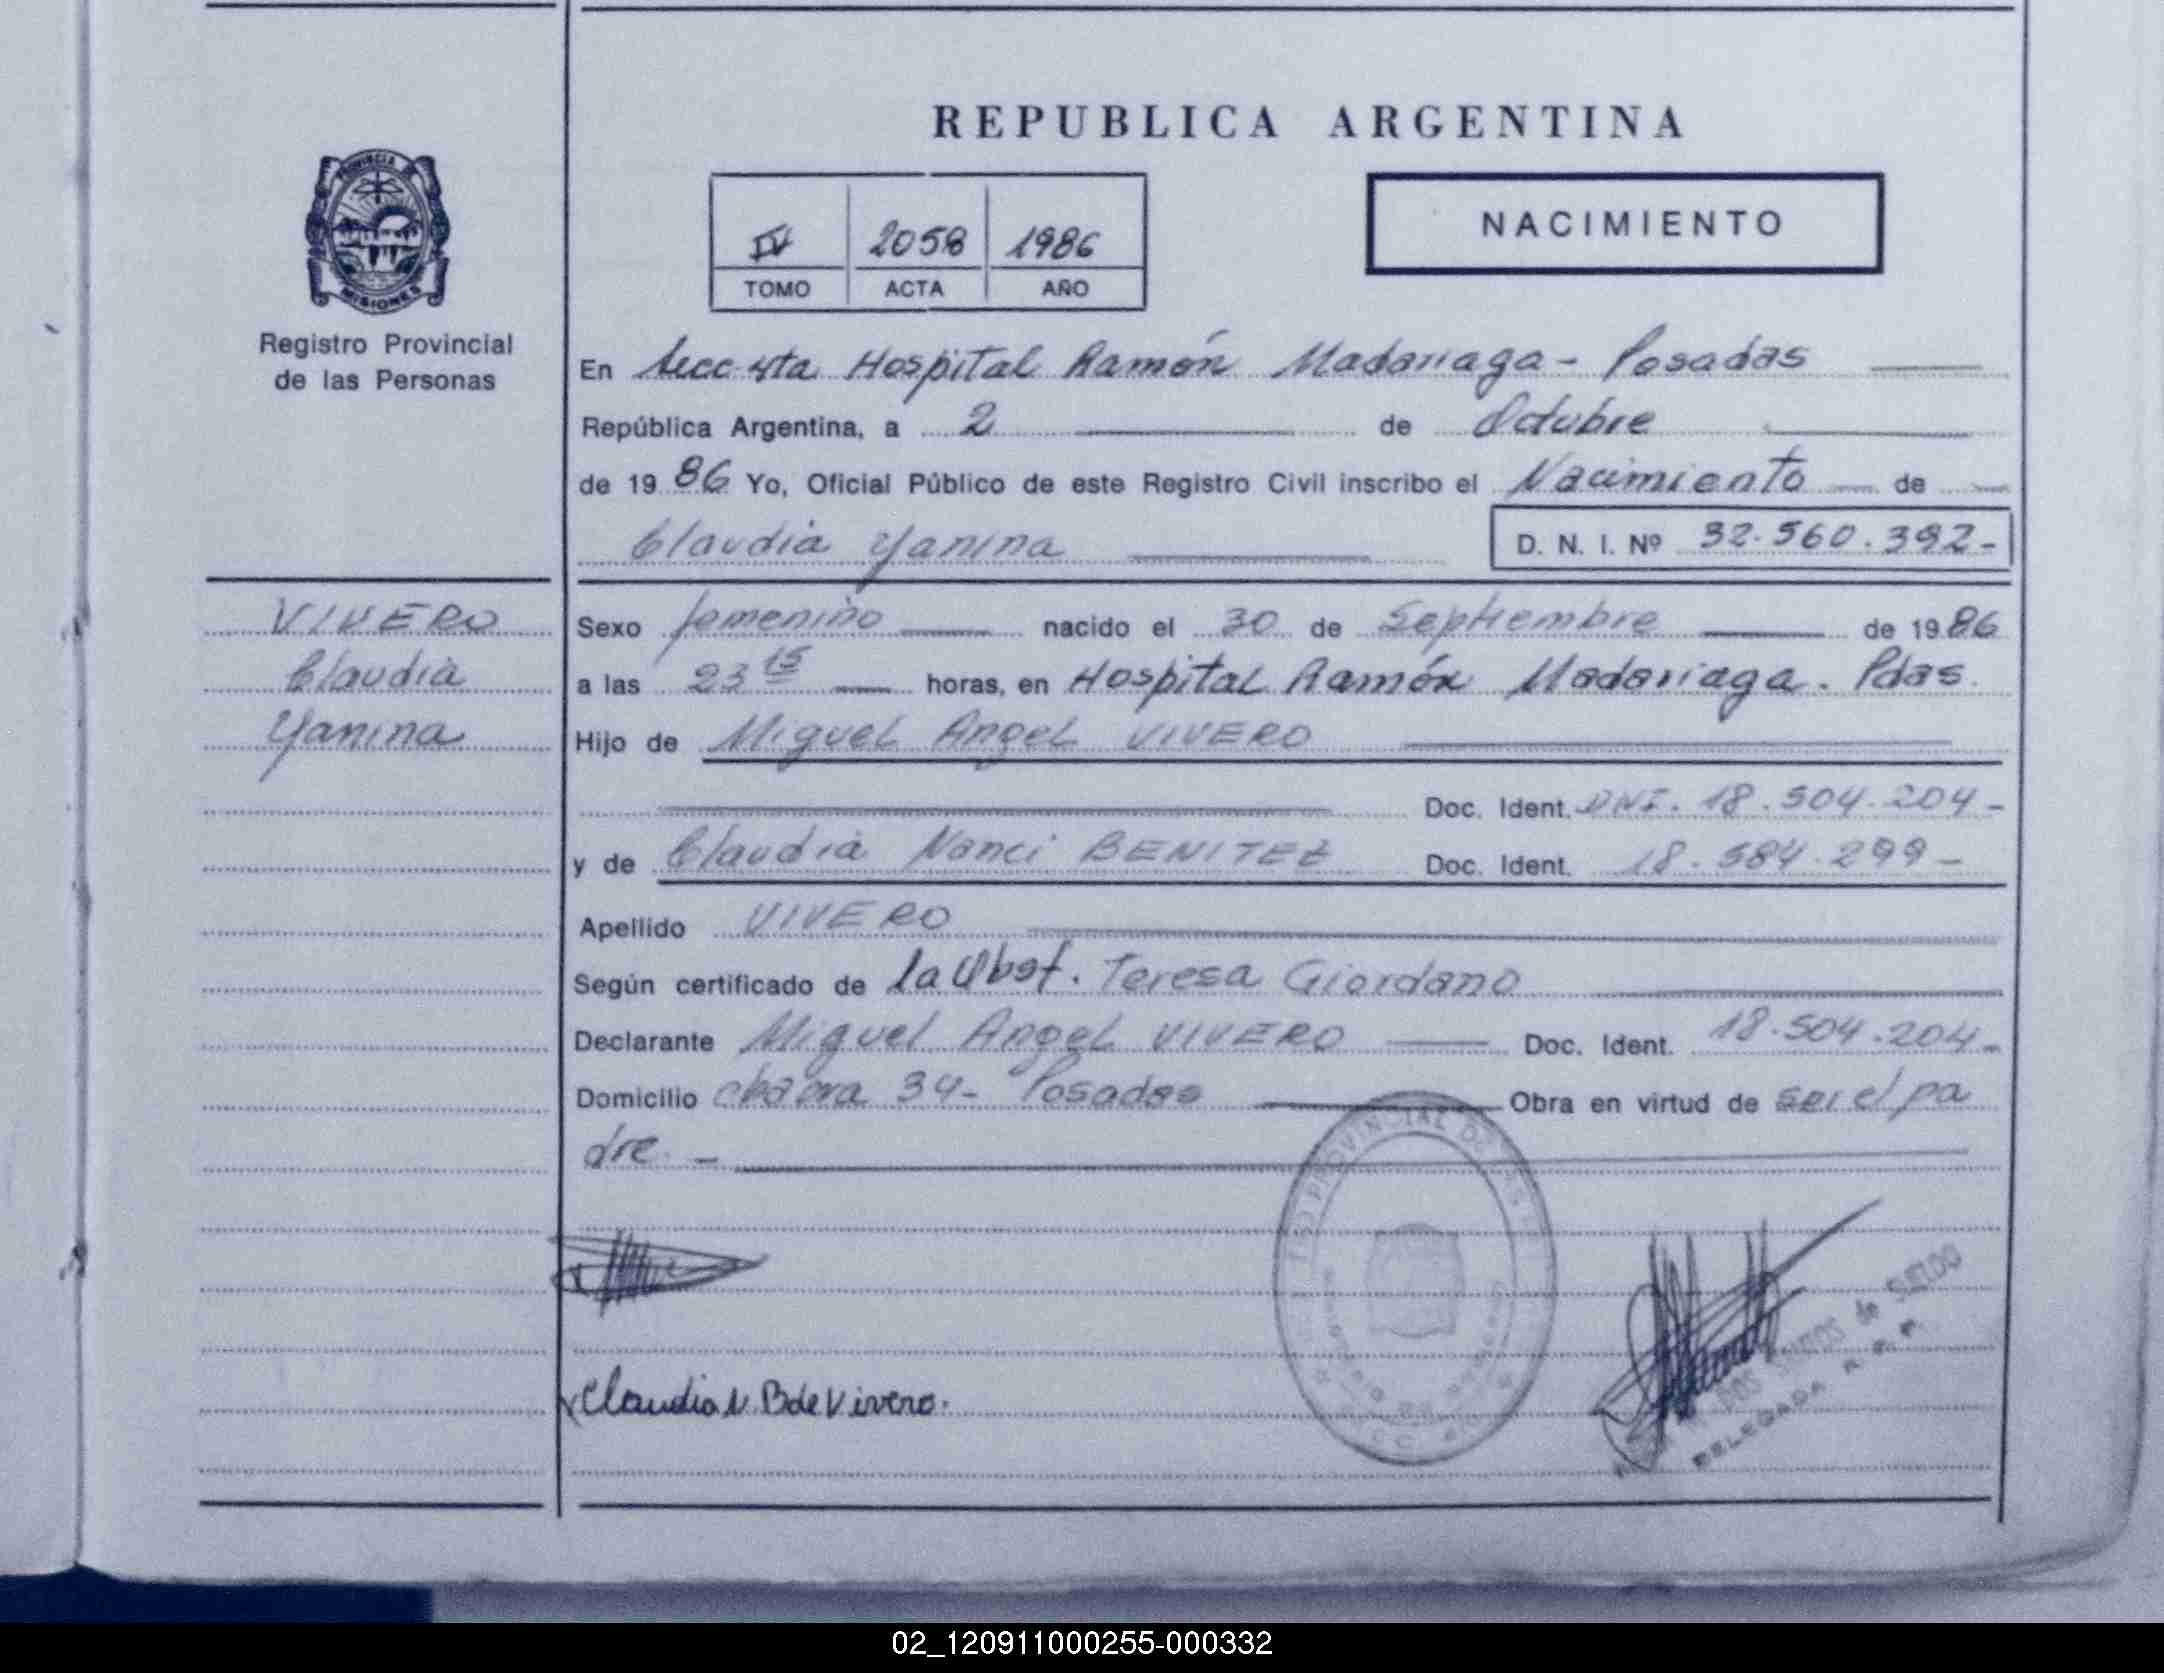 REPUBLICA ARGENTINA
PROVINCIA DE
MISIONES
Registro Provincial
de las Personas
IV 2058 1986
TOMO ACTA AÑO
NACIMIENTO
En Secc 4ta Hospital Ramón Madariaga - Posadas
República Argentina, a 2 de Octubre
de 1986 Yo, Oficial Público de este Registro Civil inscribo el Nacimiento de
Claudia Yanina D. N. I. Nº 32.560.392-
VIVERO
Claudia
Yanina
Sexo femenino nacido el 30 de Septiembre de 1986
a las 23 15 horas, en Hospital Ramón Madariaga. Pdas.
Hijo de Miguel Angel VIVERO
Doc. Ident. DNI. 18.504.204-
y de Claudia Nanci BENITEZ Doc. Ident. 18.584.299-
Apellido VIVERO
Según certificado de la Obst. Teresa Giordano
Declarante Miguel Angel VIVERO Doc. Ident. 18.504.204-
Domicilio chacra 34- Posadas Obra en virtud de ser el pa
dre. -
PROVINCIAL DE LAS
de SUELDO
DELEGADA R. P. P.
Claudia N. B de Vivero.
02_120911000255-000332